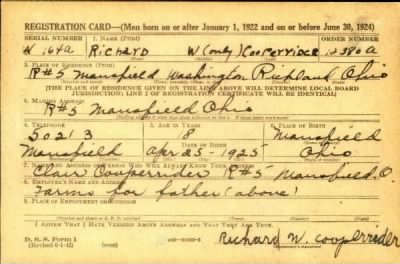 REGISTRATION CARD—(Men born on or after January 1, 1922 and on or before June 30, 1924)
SERIAL NUMBER 1. NAME (Print) ORDER NUMBER
N 164a Richard W (only) Cooperrider 12380 a
2. PLACE OF RESIDENCE (Print)
R#5 Mansfield Washington Richland Ohio
(THE PLACE OF RESIDENCE GIVEN ON THE LINE ABOVE WILL DETERMINE LOCAL BOARD
JURISDICTION; LINE 2 OF REGISTRATION CERTIFICATE WILL BE IDENTICAL)
3. MAILING ADDRESS
R#5 Mansfield Ohio
4. TELEPHONE 5. AGE IN YEARS 6. PLACE OF BIRTH
50213 8 Mansfield
DATE OF BIRTH
Mansfield Apr 25 - 1925 Ohio
7. NAME AND ADDRESS OF PERSON WHO WILL ALWAYS KNOW YOUR ADDRESS
Clair Cooperrider R#5 Mansfield O.
8. EMPLOYER'S NAME AND ADDRESS
Farms for father (above)
9. PLACE OF EMPLOYMENT OR BUSINESS
I AFFIRM THAT I HAVE VERIFIED ABOVE ANSWERS AND THAT THEY ARE TRUE.
D. S. S. Form 1
(Revised 6-1-42)
Richard W. Cooperrider
(Registrant's signature)